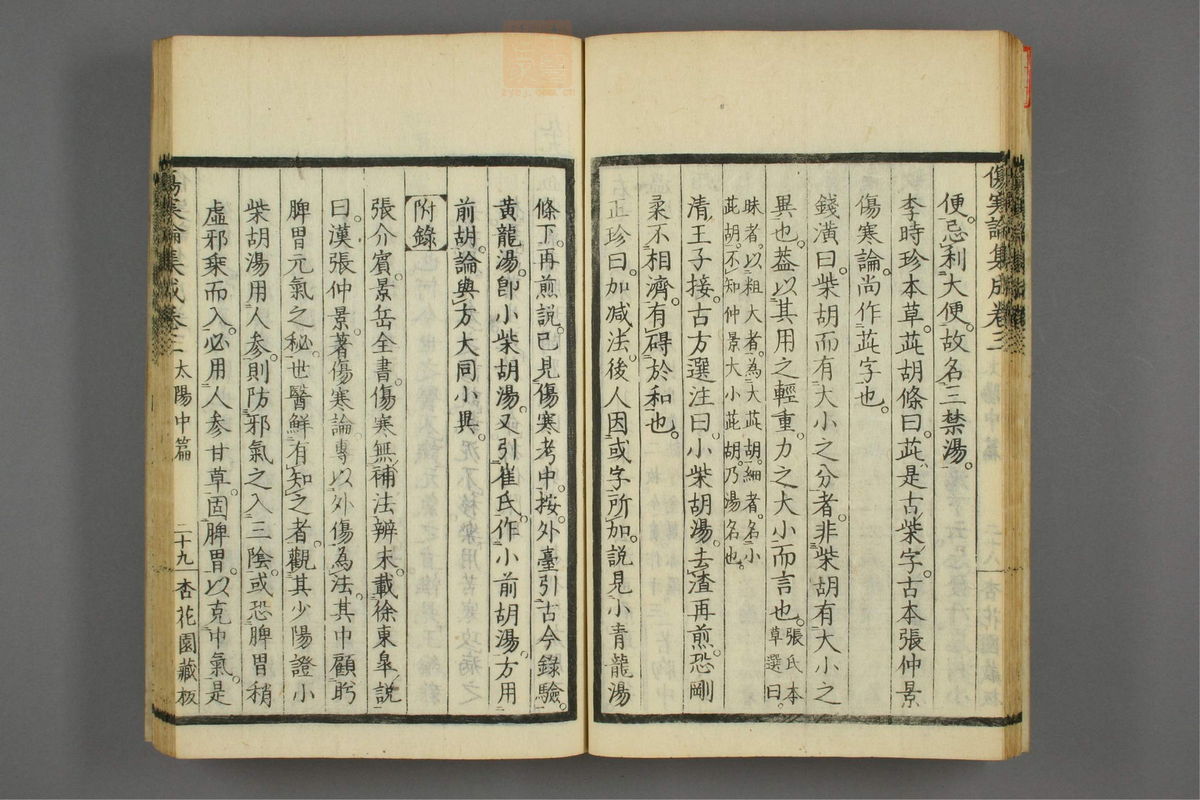 傷寒論集成卷三
便。忌利大便。故名三禁湯。
李時珍本草茈胡條曰。茈。是古柴字。古本張仲景
傷寒論。尚作茈字也。
錢潢曰。柴胡而有大小之分者。非柴胡有大小之
異也。蓋以其用之輕重。力之大小而言也。張氏本草選曰。
昧者。以粗大者。為大茈胡。細者。名小
茈胡。不知仲景大小茈胡。乃湯名也。
清王子接。古方選注曰。小柴胡湯。去渣再煎。恐剛
柔不相濟。有碍於和也。
正珍曰。加減法。後人因或字所加。說見小青龍湯
條下。再煎說。已見傷寒考中。按。外臺引古今錄驗。
黃龍湯。卽小柴胡湯。又引崔氏。作小前胡湯。方用
前胡。論與方大同小異。
附錄
張介賓。景岳全書。傷寒無補法辨末。載徐東皐說
曰。漢張仲景。著傷寒論。專以外傷為法。其中顧盻
脾胃元氣之秘。世醫鮮有知之者。觀其少陽證小
柴胡湯用人參。則防邪氣之入三陰。或恐脾胃稍
虛。邪乘而入。必用人參甘草。固脾胃。以克中氣。是
傷寒論集成卷三 太陽中篇 二十九 杏花園藏板